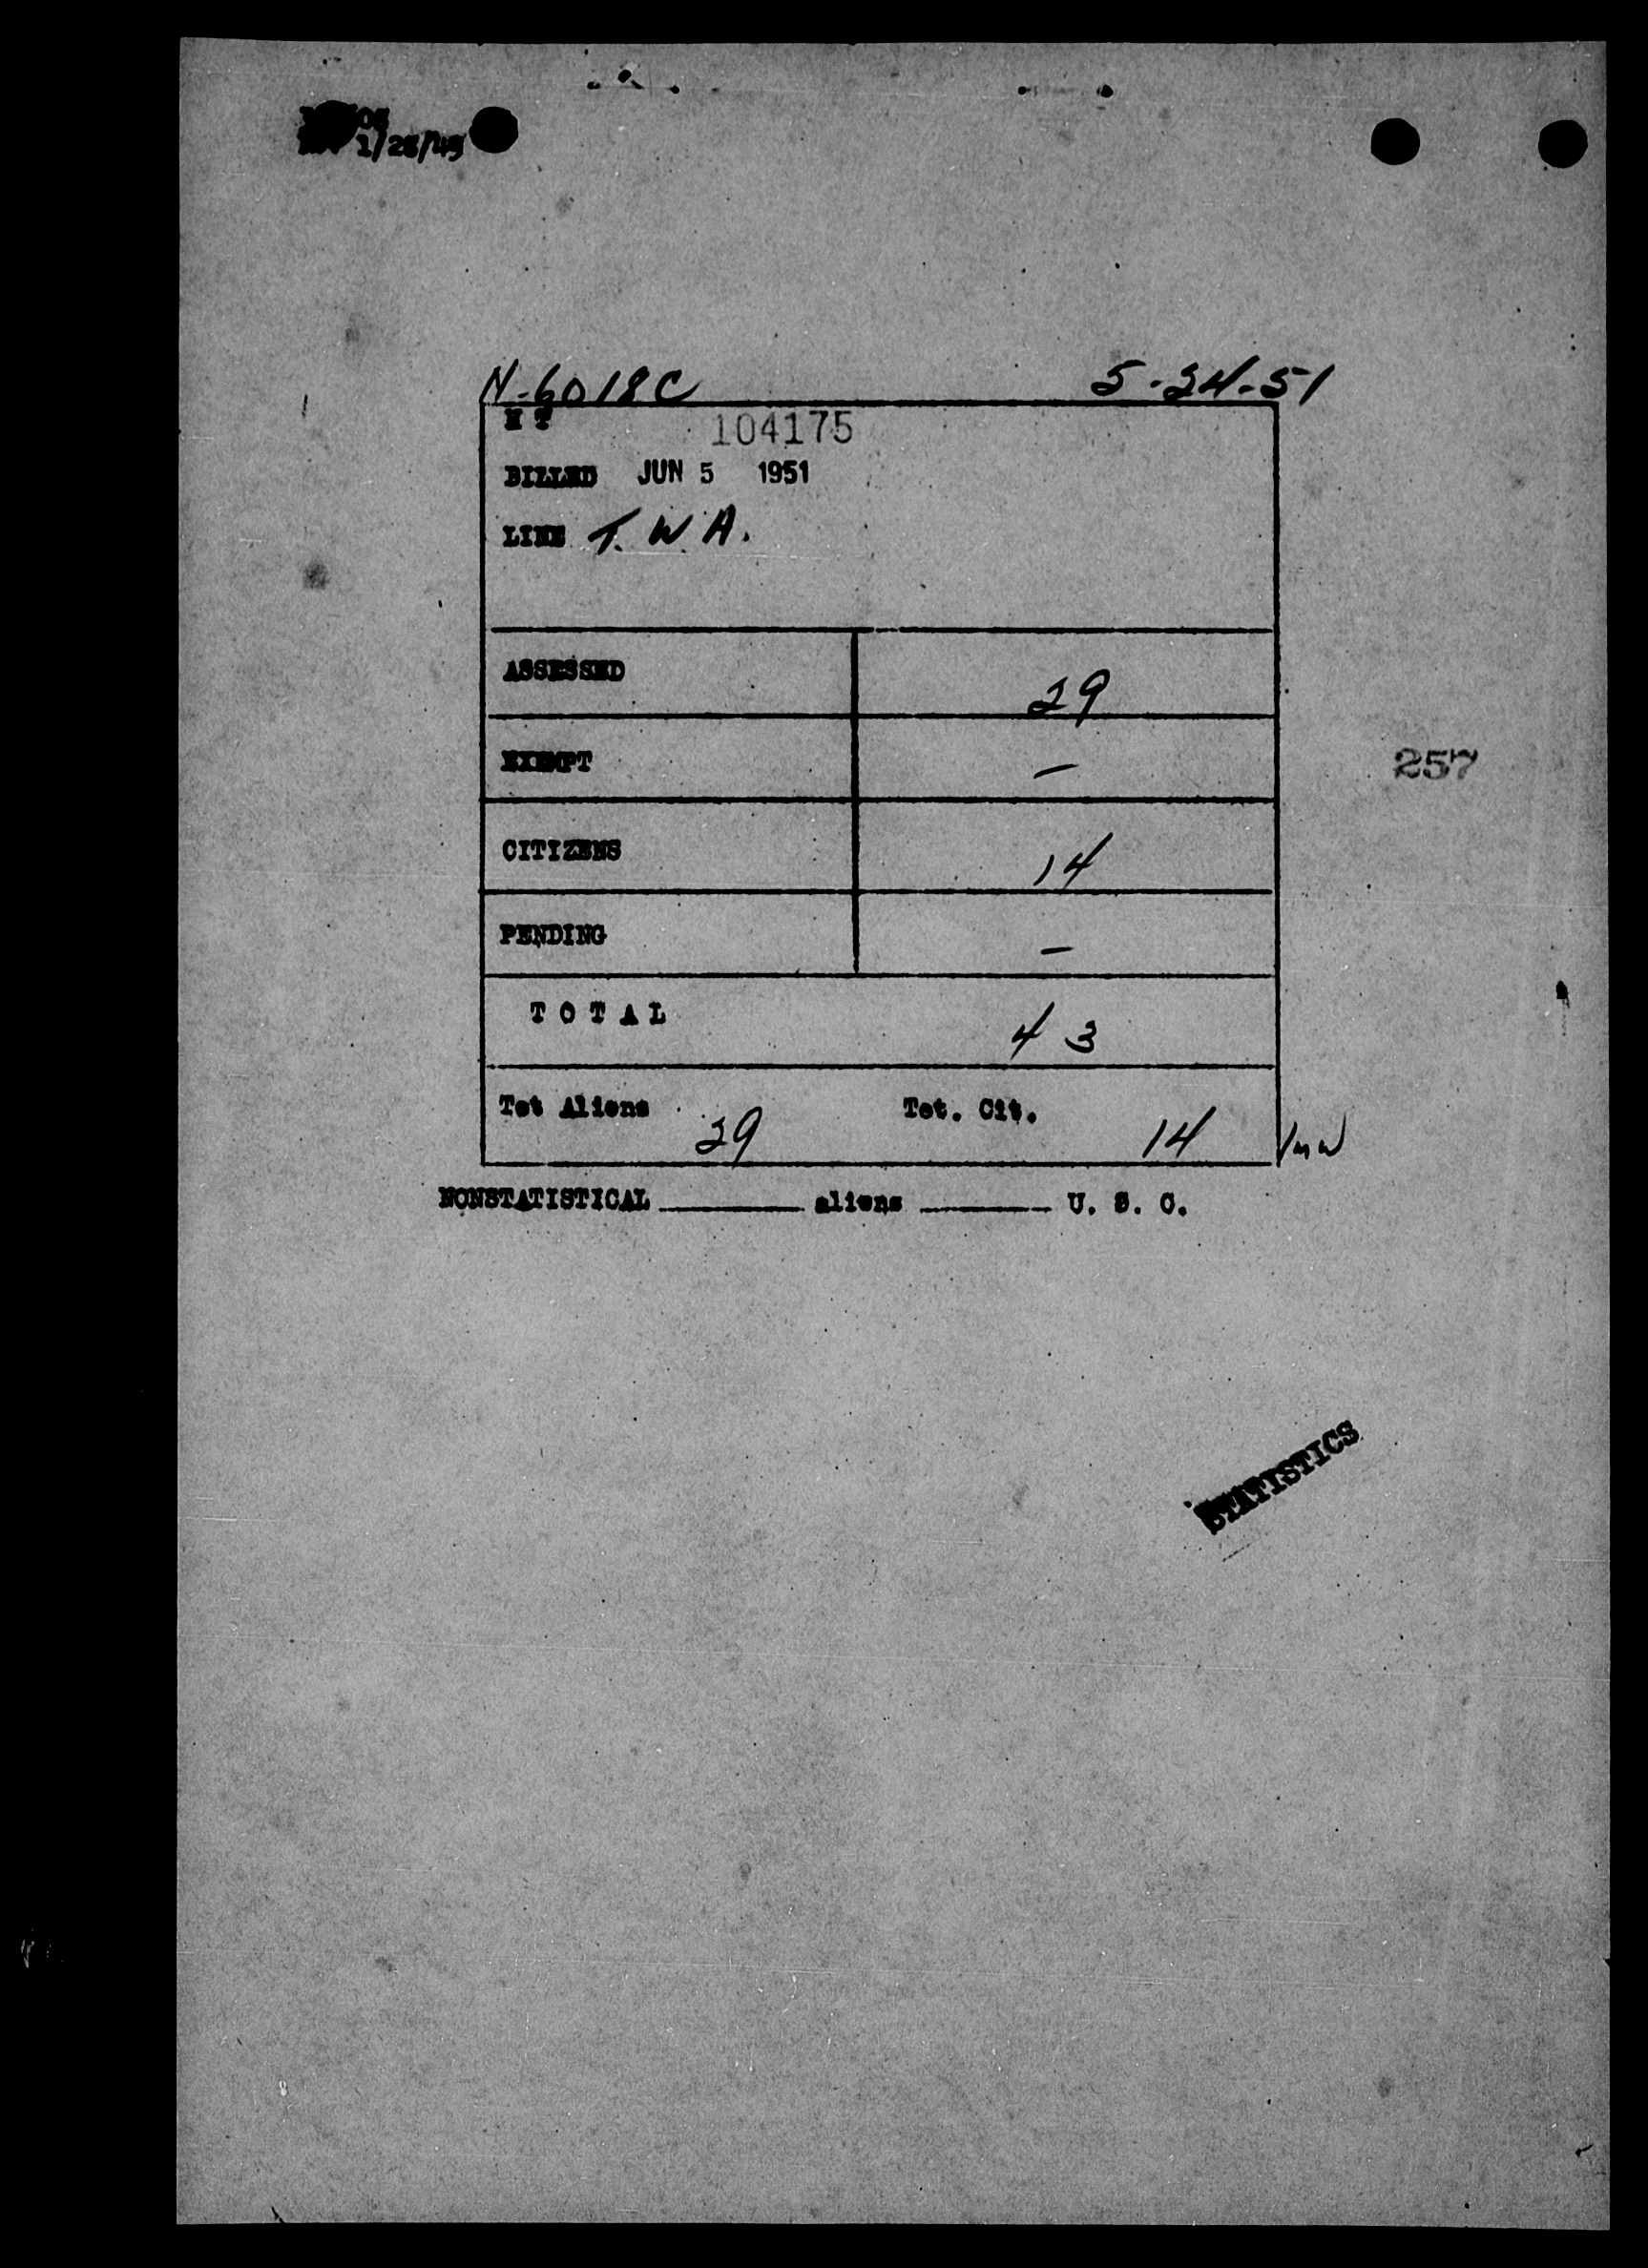 1/28/49
N-6018C 5-24-51
H T 104175
BILLED JUN 5 1951
LINE T. W. A.
ASSESSED 29
EXEMPT –
CITIZENS 14
257
PENDING –
T O T A L 43
Tot Aliens 29 Tot. Cit. 14
NONSTATISTICAL ______ aliens ______ U. S. C.
STATISTICS